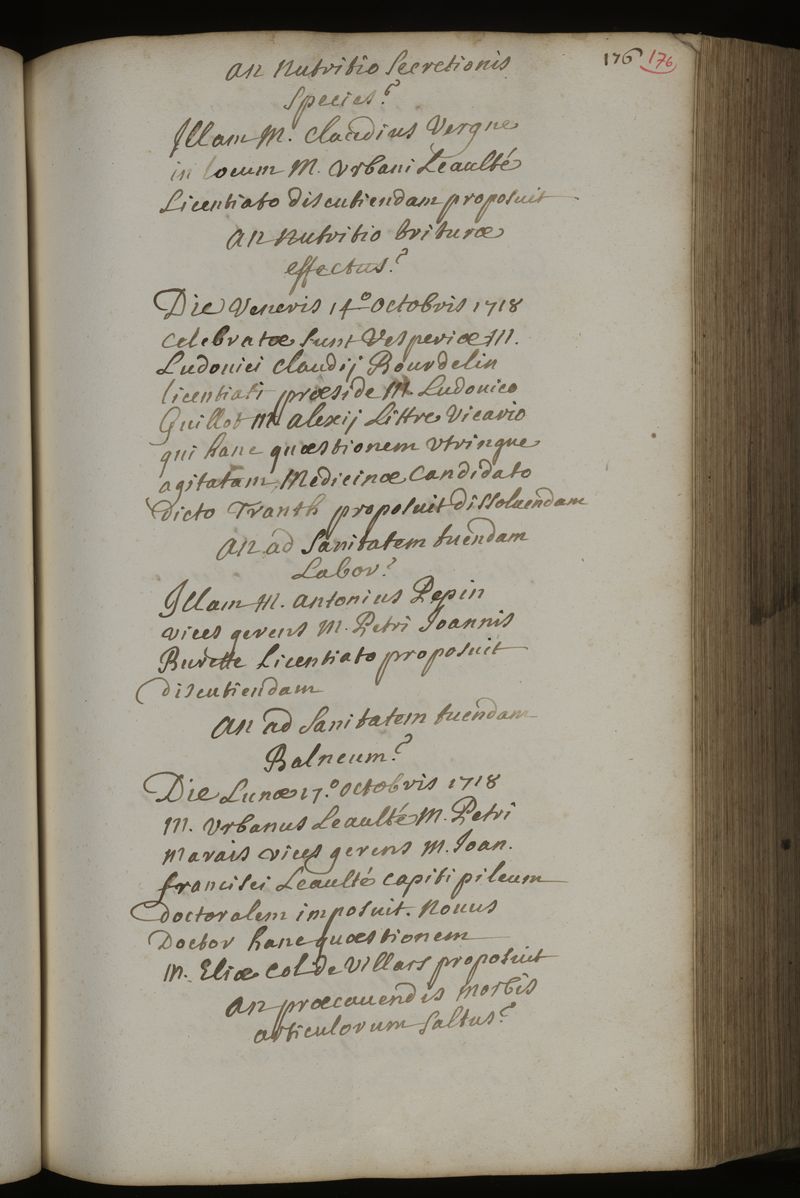 176 176
An Nutritio Secretionis
Species?
Illam M. Claudius Vergne
in locum M. Urbani Leaulté
Licentiato discutiendam proposuit
An Nutritio triturae
effectus?
Die Veneris 14.º Octobris 1718
celebratae sunt Vesperiae M.
Ludouici Claudij Bourdelin
licentiati praeside M. Ludouico
Guillot M. alexij Littre Vicario
qui hanc quaestionem utrinque
agitatam Medicinae Candidato
dicto Tranth proposuit dissoluendam
An ad Sanitatem tuendam
Labor?
Illam M. Antonius Pepin
vices gerens M. Petri Joannis
Burette Licentiato proposuit
discutiendam
An ad Sanitatem tuendam
Balneum?
Die Lunae 17.º Octobris 1718
M. Urbanus Leaulté M. Petri
Marais vices gerens M. Joan.
francisci Leaulté capiti pileum
doctoralem imposuit. Nouus
Doctor hanc quaestionem
M. Eliae Col de Villars proposuit
An praecauendis morbis
articulorum Saltus?